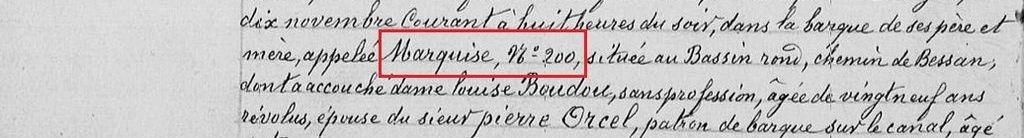 dix novembre Courant à huit heures du soir, dans la barque de ses père et
mère, appelée Marquise, N° 200, située au Bassin rond, chemin de Bessan,
dont a accouché dame louise Boudou, sans profession, âgée de vingt neuf ans
révolus, épouse du sieur pierre Orcel, patron de barque sur le canal, âgé